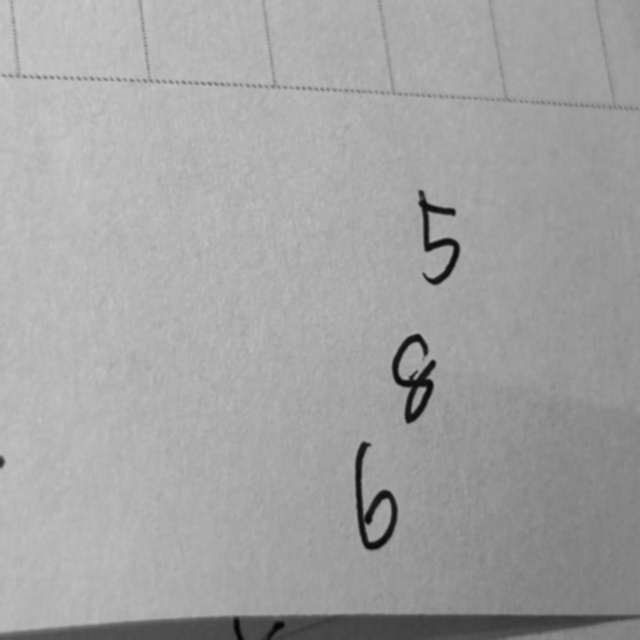 5
8
6